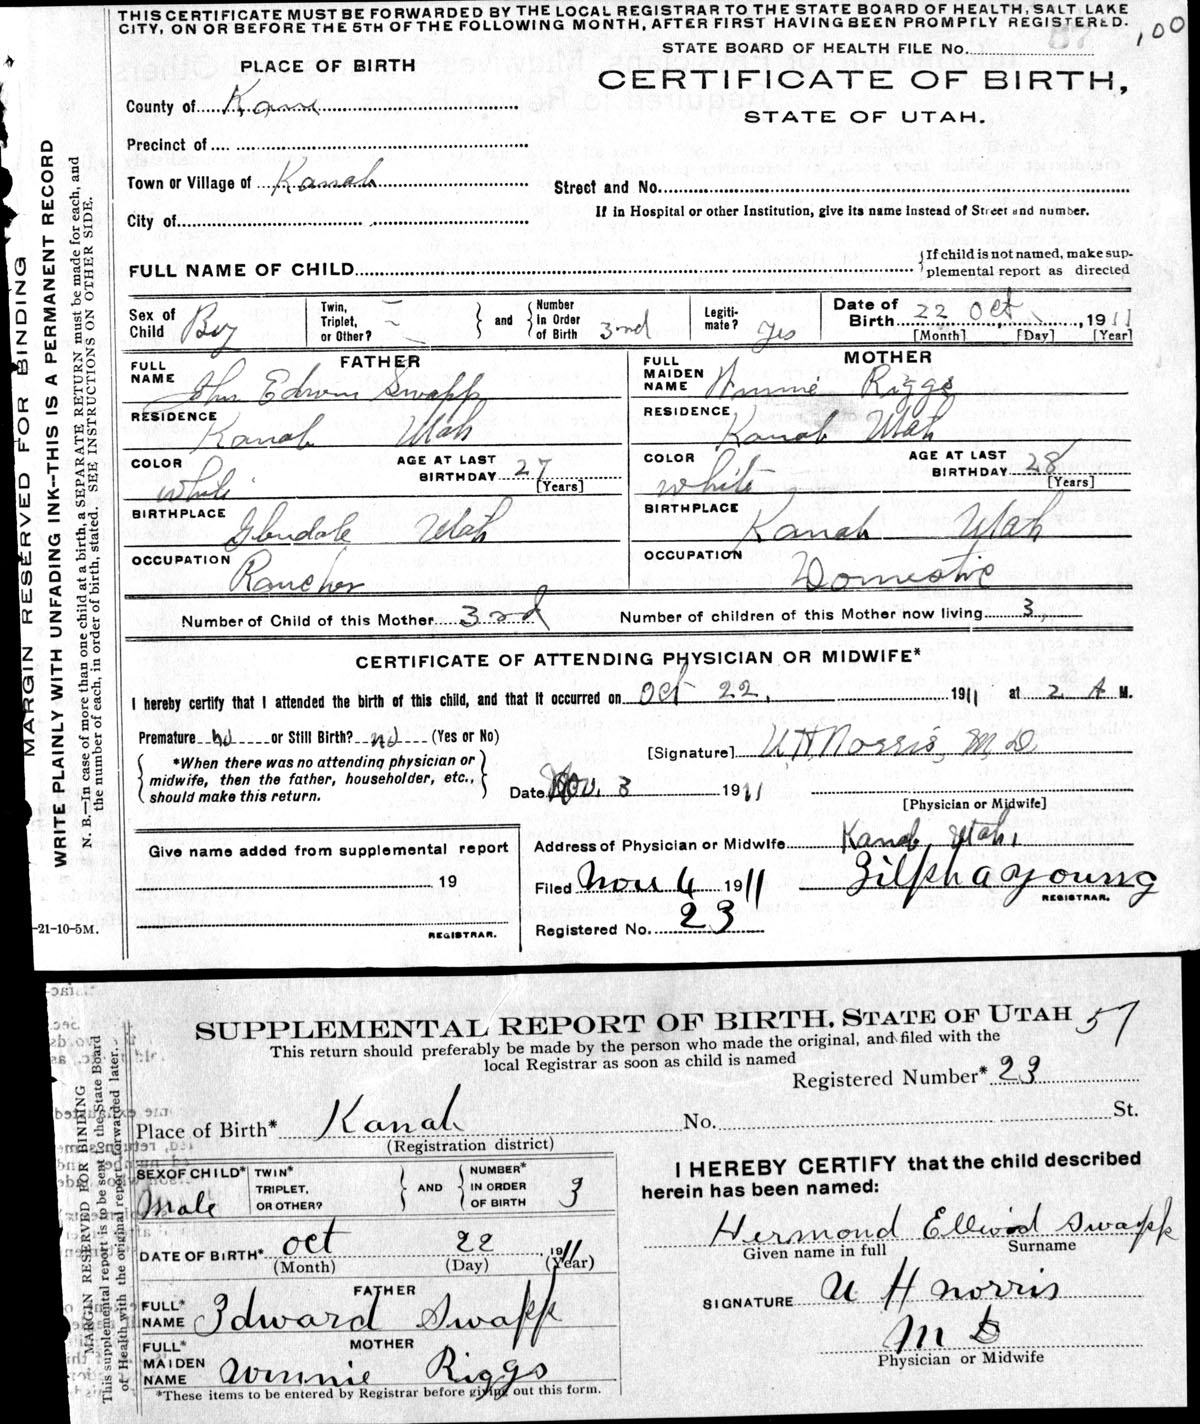 THIS CERTIFICATE MUST BE FORWARDED BY THE LOCAL REGISTRAR TO THE STATE BOARD OF HEALTH, SALT LAKE
CITY, ON OR BEFORE THE 5TH OF THE FOLLOWING MONTH, AFTER FIRST HAVING BEEN PROMPTLY REGISTERED.
,00
STATE BOARD OF HEALTH FILE No. 57
PLACE OF BIRTH
CERTIFICATE OF BIRTH,
STATE OF UTAH.
County of Kane
Precinct of
Town or Village of Kanab
Street and No.
City of
If in Hospital or other Institution, give its name instead of Street and number.
FULL NAME OF CHILD
If child is not named, make sup-
plemental report as directed
Sex of Child Boy
Twin, Triplet, or Other?
and
Number in Order of Birth 3rd
Legiti-mate? Yes
Date of Birth 22 Oct, 1911
[Month] [Day] [Year]
FATHER
FULL NAME John Edwin Swapp
MOTHER
FULL MAIDEN NAME Winnie Riggs
RESIDENCE Kanab Utah
RESIDENCE Kanab Utah
COLOR White
AGE AT LAST BIRTHDAY 27 [Years]
COLOR White
AGE AT LAST BIRTHDAY 28 [Years]
BIRTHPLACE Glendale Utah
BIRTHPLACE Kanab Utah
OCCUPATION Rancher
OCCUPATION Domestic
Number of Child of this Mother 3rd
Number of children of this Mother now living 3
CERTIFICATE OF ATTENDING PHYSICIAN OR MIDWIFE*
I hereby certify that I attended the birth of this child, and that it occurred on Oct 22, 1911 at 2 A M.
Premature no or Still Birth? no (Yes or No)
[Signature] U H Norris M D
*When there was no attending physician or
midwife, then the father, householder, etc.,
should make this return.
Date Nov. 3 1911
[Physician or Midwife]
Give name added from supplemental report
19
REGISTRAR.
Address of Physician or Midwife Kanab, Utah,
Filed Nov 4 1911
Zilpha A Young
REGISTRAR.
Registered No. 23
-21-10-5M.
MARGIN RESERVED FOR BINDING
WRITE PLAINLY WITH UNFADING INK--THIS IS A PERMANENT RECORD
N. B.—In case of more than one child at a birth, a SEPARATE RETURN must be made for each, and
the number of each, in order of birth, stated. SEE INSTRUCTIONS ON OTHER SIDE.
SUPPLEMENTAL REPORT OF BIRTH, STATE OF UTAH 57
This return should preferably be made by the person who made the original, and filed with the
local Registrar as soon as child is named
Registered Number* 23
Place of Birth* Kanab No. St.
(Registration district)
SEX OF CHILD* Male
TWIN* TRIPLET, OR OTHER?
AND
NUMBER* IN ORDER OF BIRTH 3
DATE OF BIRTH* Oct 22, 1911
(Month) (Day) (Year)
FATHER
FULL* NAME Edward Swapp
MOTHER
FULL* MAIDEN NAME Winnie Riggs
*These items to be entered by Registrar before giving out this form.
I HEREBY CERTIFY that the child described
herein has been named:
Hermond Ellwood Swapp
Given name in full Surname
SIGNATURE U H Norris
M D
Physician or Midwife
MARGIN RESERVED FOR BINDING
This supplemental report is to be sent to the State Board
of Health with the original report forwarded later.